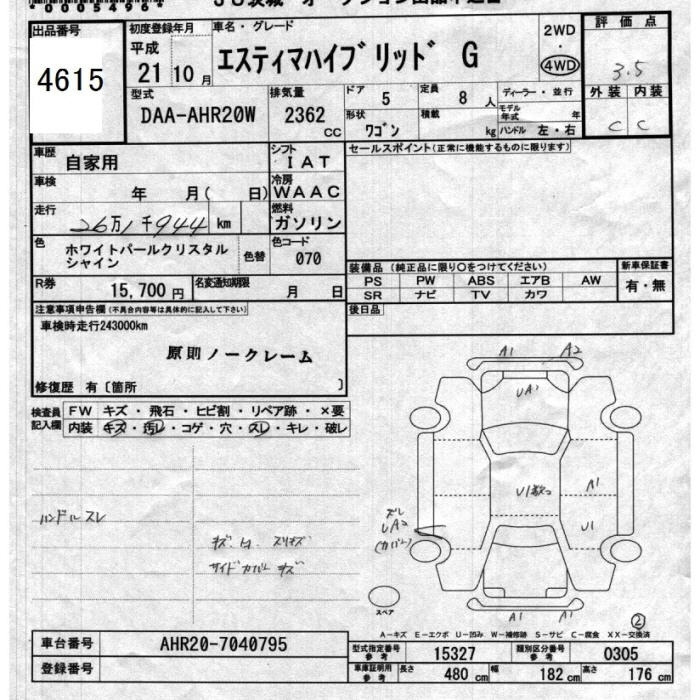 *00054964*
出品番号 初度登録年月 車名・グレード 2WD 評価点
4615 平成 21 10月 エスティマハイブリッド G ・ 4WD 3.5
型式 排気量 ドア 定員 ディーラー・並行 外装 内装
DAA-AHR20W 2362 CC 5 8 人 モデル年式 年 C C
形状 ワゴン 積載 kg ハンドル 左・右
車歴 自家用 シフト IAT セールスポイント(正常に機能するものに限ります)
車検 年 月( 日) 冷房 WAAC
走行 26万1千944 km 燃料 ガソリン
色 ホワイトパールクリスタル 色替 色コード 070
シャイン
装備品 (純正品に限り○をつけてください) 新車保証書
R券 15,700円 名変通知期限 月 日 PS PW ABS エアB AW 有・無
SR ナビ TV カワ
注意事項申告欄(不具合内容等は具体的に記入して下さい) 後日品
車検時走行243000km
原則ノークレーム
修復歴 有〔箇所 〕
A1 A2
UA1
検査員 FW キズ・飛石・ヒビ割・リペア跡・×要
記入欄 内装 キズ・汚レ・コゲ・穴・スレ・キレ・破レ
U1 A1
ハンドルスレ UA2 U1
サイドカバー キズ (カバー)
スペア
A1 A1
②
A-キズ E-エクボ U-凹み W-補修跡 S-サビ C-腐食 XX-交換済
車台番号 AHR20-7040795 型式指定番号 参考 15327 類別区分番号 参考 0305
登録番号 車庫証明用 参考 長さ 480 cm 幅 182 cm 高さ 176 cm